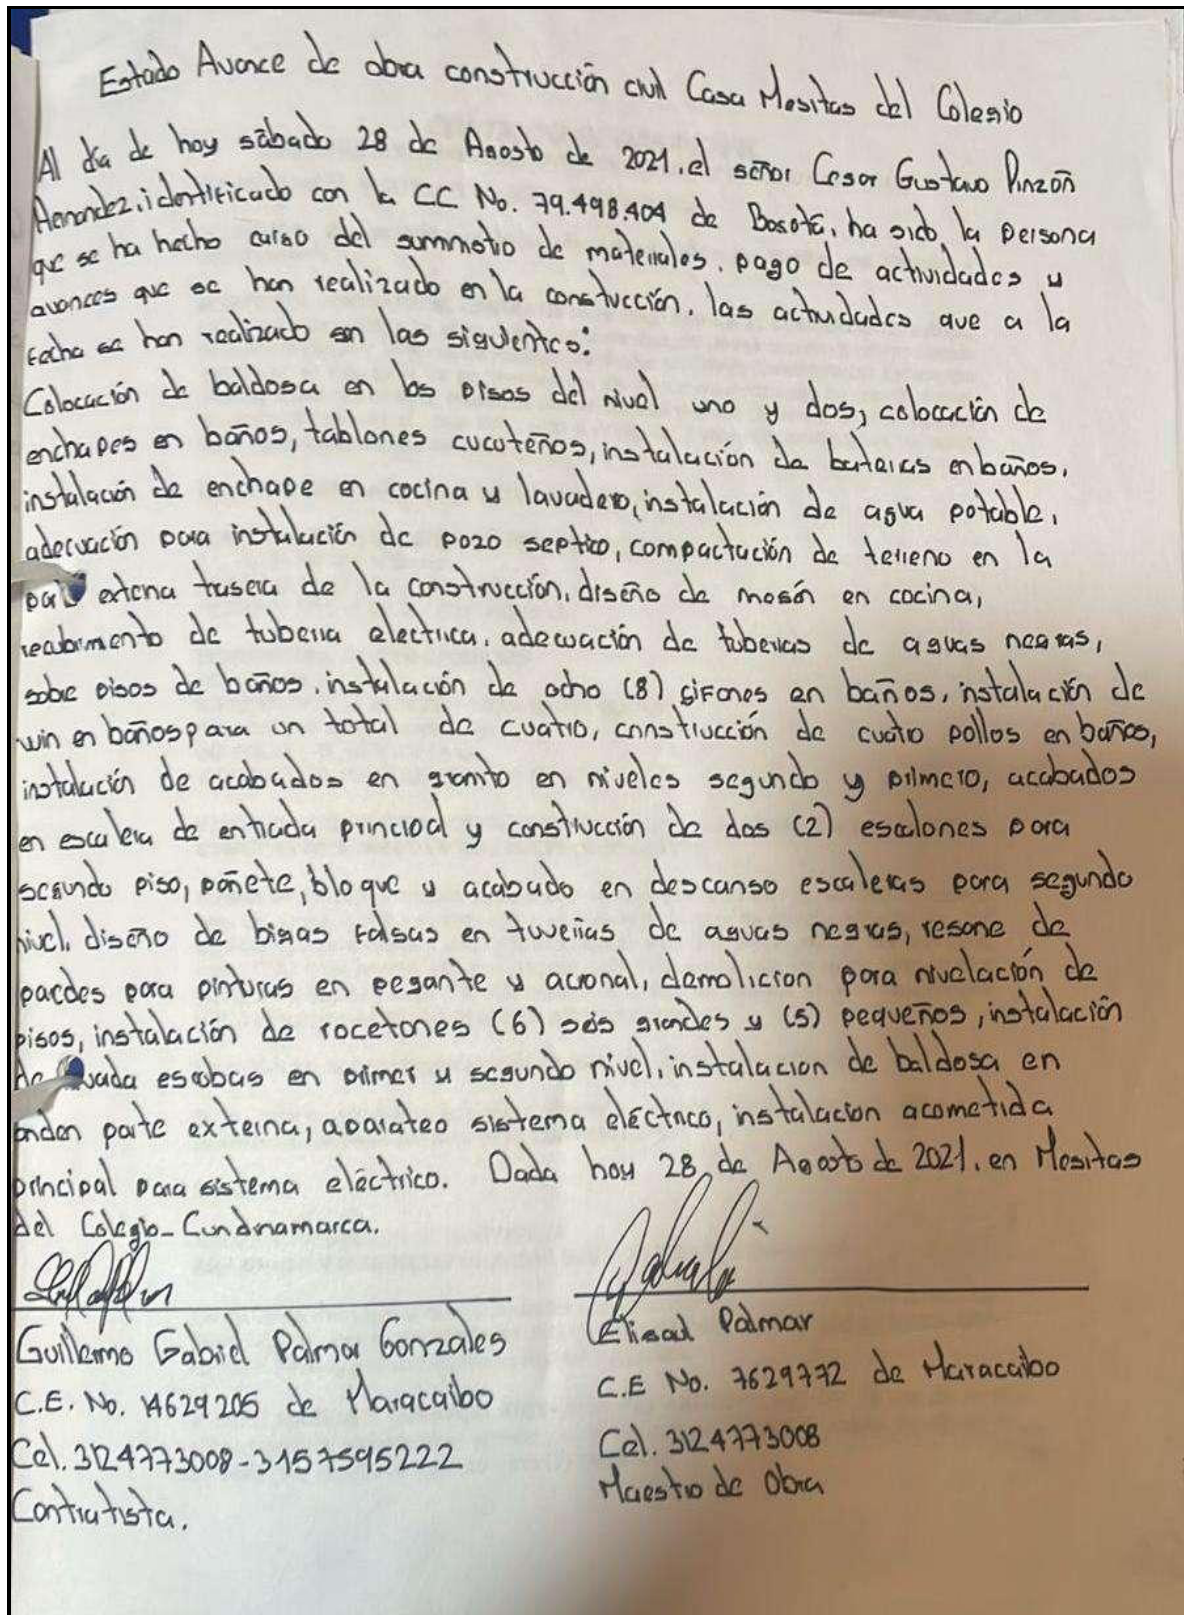 Estado Avance de obra construcción civil Casa Mesitas del Colegio
Al día de hoy sábado 28 de Agosto de 2021, el señor Cesar Gustavo Pinzón
Hernandez, identificado con la CC No. 79.498.404 de Bogotá, ha sido la persona
que se ha hecho cargo del suministro de materiales, pago de actividades y
avances que se han realizado en la construcción, las actividades que a la
fecha se han realizado son las siguientes:
Colocación de baldosa en los pisos del nivel uno y dos, colocación de
enchapes en baños, tablones cucuteños, instalación de baterias en baños,
instalación de enchape en cocina y lavadero, instalación de agua potable,
adecuación para instalación de pozo septico, compactación de terreno en la
parte externa trasera de la construcción, diseño de mesón en cocina,
recubrimento de tuberia electrica, adecuación de tuberias de aguas negras,
sobre pisos de baños, instalación de ocho (8) sifones en baños, instalación de
win en baños para un total de cuatro, construcción de cuatro pollos en baños,
instalación de acabados en granito en niveles segundo y primero, acabados
en escalera de entrada principal y construcción de dos (2) escalones para
segundo piso, pañete, bloque y acabado en descanso escaleras para segundo
nivel, diseño de bigas falsas en tuverias de aguas negras, resane de
paredes para pinturas en pegante y acronal, demolicion para nivelación de
pisos, instalación de rocetones (6) seis grandes y (5) pequeños, instalación
de guada escobas en primer y segundo nivel, instalacion de baldosa en
anden parte externa, aparateo sistema eléctrico, instalacion acometida
principal para sistema eléctrico. Dada hoy 28 de Agosto de 2021, en Mesitas
del Colegio - Cundinamarca.
Guillermo Gabriel Palmar Gonzales
C.E. No. 14629205 de Maracaibo
Cel. 3124773008-3157595222
Contratista.
Elisaul Palmar
C.E No. 7629772 de Maracaibo
Cel. 3124773008
Maestro de Obra